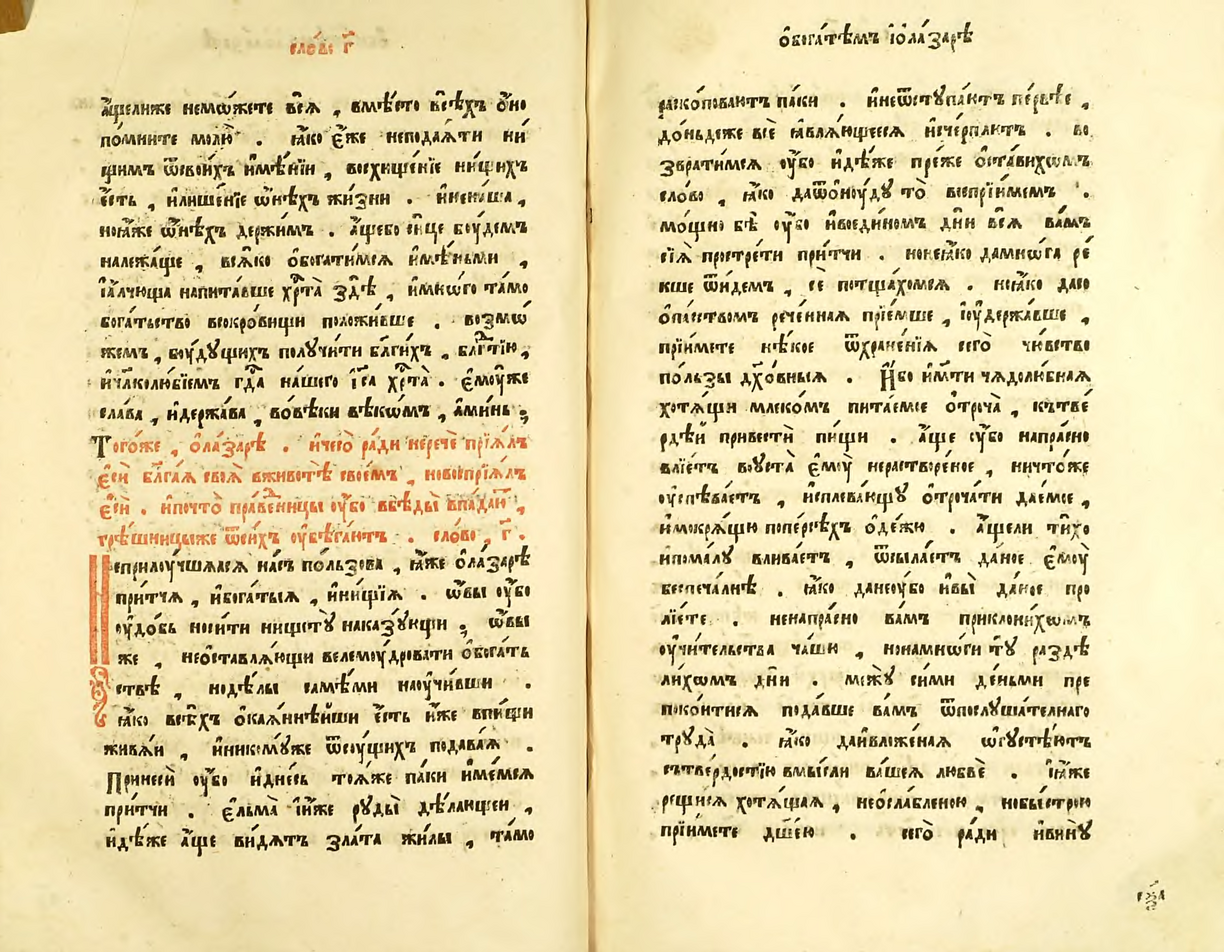 сло́во г҃
а҆́щелиже немо́жете всѧ̀ , вмѣ́сто всѣ́хъ ѻ҆но
по́мните молю̀ . ꙗ҆́ко є҆́же неподаѧ́ти ни
щимъ ѿсвои́хъ и҆мѣ́нїи , восхище́нїе ни́щихъ
є҆́сть , и҆лише́нїе ѡ҆нѣ́хъ жи́зни . и҆несвоѧ̀ ,
ноꙗ҆́же ѡ҆нѣ́хъ держи́мъ . а҆́щебо си́це бꙋ́демъ
належа́ще , всѧ́ко ѻ҆богати́мсѧ и҆мѣ́ньми ,
і҆а҆́лчюща напита́вше хр҃та̀ здѣ̀ , и҆мно́го та́мо
бога́тьство всокро́вищи положи́вше . возмо́
жемъ , бꙋ́дꙋщихъ полꙋчи́ти бл҃ги́хъ , бл҃гⷣтїю ,
и҆чл҃колю́бїемъ гдⷭ҇а на́шего і҆с҃а хр҃та̀ . є҆мꙋ́же
сла́ва , и҆держа́ва , вовѣ́ки вѣкѡ́мъ , а҆ми́нь ;
Того́же , ѻ҆ла́зарѣ . и҆чего̀ ра́ди неречѐ прїѧ́лъ
є҆сѝ бл҃га́ѧ своѧ̀ вживотѣ̀ свое́мъ , новоспрїѧ́лъ
є҆сѝ . и҆почто̀ пра́вⷣеницы ᲂу҆́бо вбѣды̀ впа́даютъ ,
грѣ́шницыже ѿси́хъ ᲂу҆бѣ́гаютъ . сло́во , г҃ .
Неприлꙋ́чшаѧсѧ на́съ по́льзова , ꙗ҆́же ѻ҆ла́зарѣ
при́тча , и҆бога́тыѧ , и҆ни́щїѧ . ѡ҆́вы ᲂу҆́бо
ᲂу҆до́бь носи́ти нищетꙋ̀ наказꙋ́ющи ; ѡ҆́вы
же , неѡ҆ставлѧ́ющи велемꙋ́дровати ѻ҆бога́ть
ствѣ , нодѣ́лы самѣ́ми наꙋчи́вши .
ꙗ҆́ко всѣ́хъ ѻ҆каѧ́ннѣйши є҆́сть и҆́же впи́щи
живѧ́и , и҆никомꙋ́же ѿсꙋ́щихъ подава́ѧ .
Принесѝ ᲂу҆́бо и҆дне́сь тоѧ́же па́ки и҆ме́мсѧ
при́тчи . є҆льма̀ і҆и҆́же рꙋды̀ дѣ́лающеи ,
и҆дѣ́же а҆́ще ви́дѧтъ зла́та жи́лы , та́мо
ѻ҆бога́тѣмъ і҆ѻла́зарѣ
раскопова́ютъ па́ки . и҆неѿстꙋпа́ютъ пе́рвѣе ,
до́ньдеже всѐ ꙗ҆влѧ́ющеесѧ и҆счерпа́ютъ . во
звратимсѧ ᲂу҆́бо и҆дѣ́же пре́же ѻ҆ста́вихѡмъ
сло́во , ꙗ҆́ко даѿѻнꙋ́дꙋ то̀ воспрїи́мемъ .
мо́щно бѣ̀ ᲂу҆́бо и҆воеди́номъ дни̑ всѧ̀ ва́мъ
сїѧ̀ простре́ти при́тчи . нонеꙗ҆́ко дамно́га ре́
кше ѿи́демъ , сѐ потща́хомсѧ . ноꙗ҆́ко дасо
ѻ҆па́ствомъ рече́ннаѧ прїе́мше , і҆ᲂу҆держа́вше ,
прїи́мете нѣ́кое ѿхране́нїѧ сего̀ чю́вство
по́льзы дх҃о́вныѧ . И҆́бо мт҃и чѧдолю́бнаѧ
хотѧ́щи млеко́мъ пита́емое ѻ҆троча̀ , кътве́
рдѣи привестѝ пи́щи . а҆́ще ᲂу҆́бо напра́сно
влїе́тъ воуста̀ є҆мꙋ̀ нерастворе́ное , ничто́же
ᲂу҆спѣва́етъ , и҆сплева́ющꙋ ѻ҆троча́ти дае́мое ,
и҆мокрѧ́щю попе́рсѣхъ ѻ҆де́жю . а҆́щели ти́хо
и҆пома́лꙋ влива́етъ , ѿсыла́етъ да́ное є҆мꙋ̀
беспеча́лнѣ . ꙗ҆́ко данеᲂу҆́бо и҆вы̀ да́ное про
лїе́те . ненапра́сно ва́мъ приклони́хѡмъ
ᲂу҆чи́тельства ча́шю , нонамно́ги тꙋ̀ раздѣ
ли́хѡмъ дни̑ . межꙋ̀ си́ми де́ньми пре
поко́итисѧ пода́вше ва́мъ ѿпослꙋ́шателнаго
трꙋда̀ . ꙗ҆́ко даи҆вложе́наѧ ѡ҆гꙋстѣ́ютъ
сътве́рдостїю вмы́сли ва́шеѧ любвѐ . і҆ꙗ҆́же
рещи́сѧ хотѧ́щаѧ , неѻ҆сла́бленою , нобы́строю
прїи́мете дш҃е́ю . сего̀ ра́ди и҆винꙋ̀